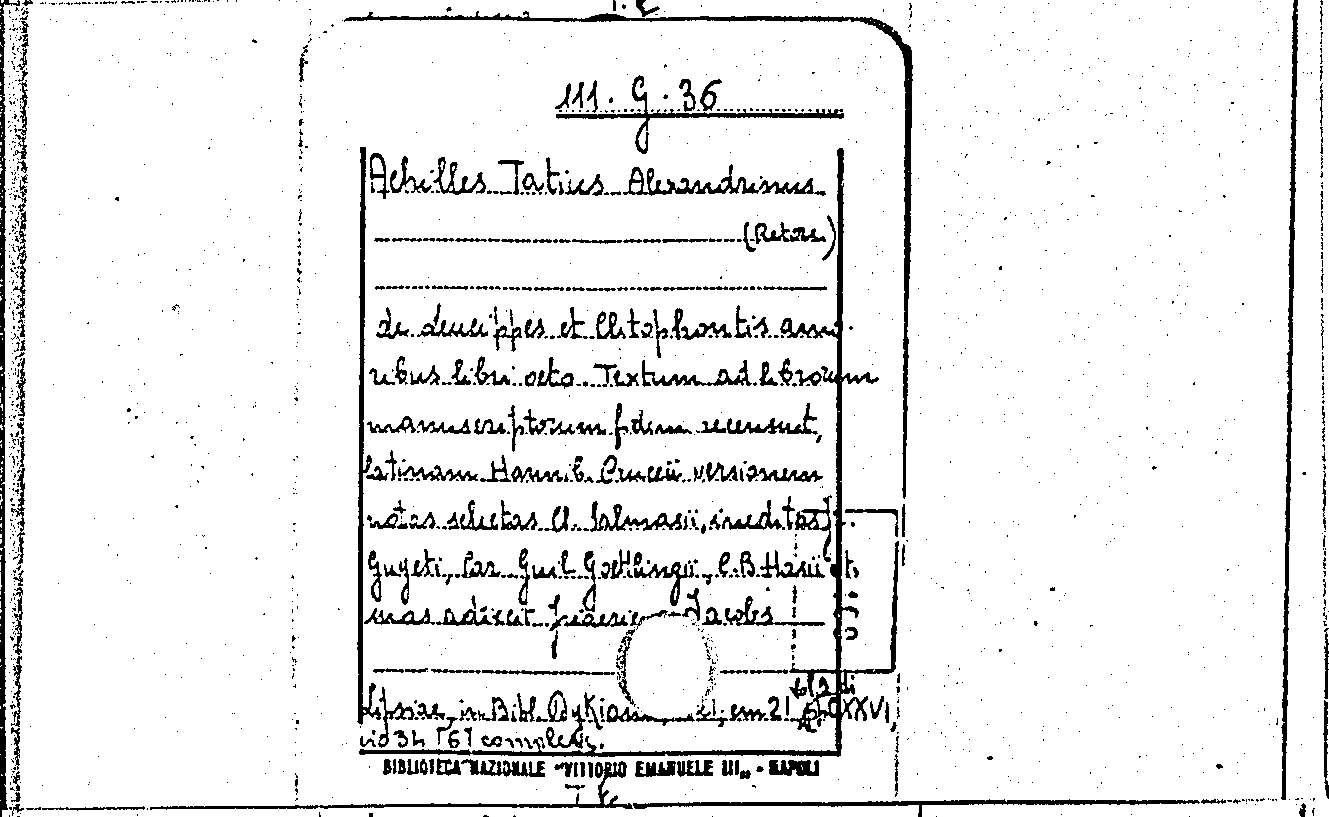 111. G. 36
Achilles Tatius Alexandrinus
(Retore)
de Leucippes et Clitophontis amo-
ribus libri octo. Textum ad librorum
manuscriptorum fidem recensuit,
latinam Hannib. Cruceii versionem
notas selectas Cl. Salmasii, ineditas F.
Guyeti, Car. Guil. Goettlingii, C.B. Hasii et
suas adiecit Frideric Jacobs
Lipsiae, in Bibl. Dykiana, cm 21 CXXVI,
compless.
BIBLIOTECA NAZIONALE "VITTORIO EMANUELE III„ - NAPOLI